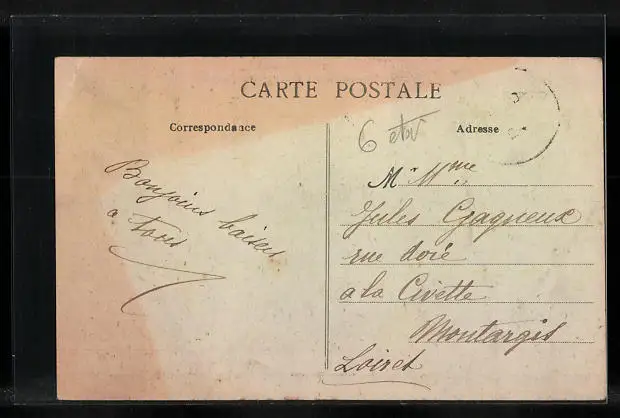 CARTE POSTALE
Correspondance
Adresse
6
Bonjours baisers
a tous
M Mme
Jules Gagneux
rue dorée
a la Civette
Montargis
Loiret